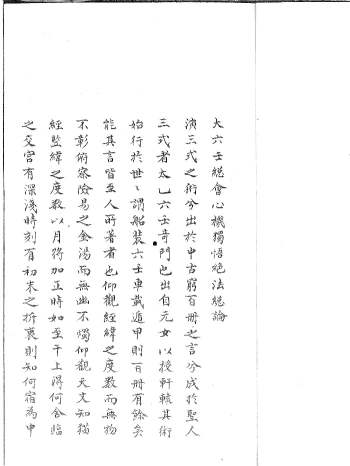 大六壬總會心機獨悟絕法總論
演三式之術分出於中古窮百冊之言兮成於聖人
三式者太乙六壬奇門也出自元女以授軒轅其術
始行於世謂船裝六壬車載遁甲則百冊有餘矣
能其言皆至人所著者也仰觀經緯之度數而無物
不彰俯察險易之金湯而無幽不燭仰觀天文知貓
經監緯之度數以月將加正時如至干上得何舍臨
之交宮有深淺時刻有初末之折衷則知何宿為中